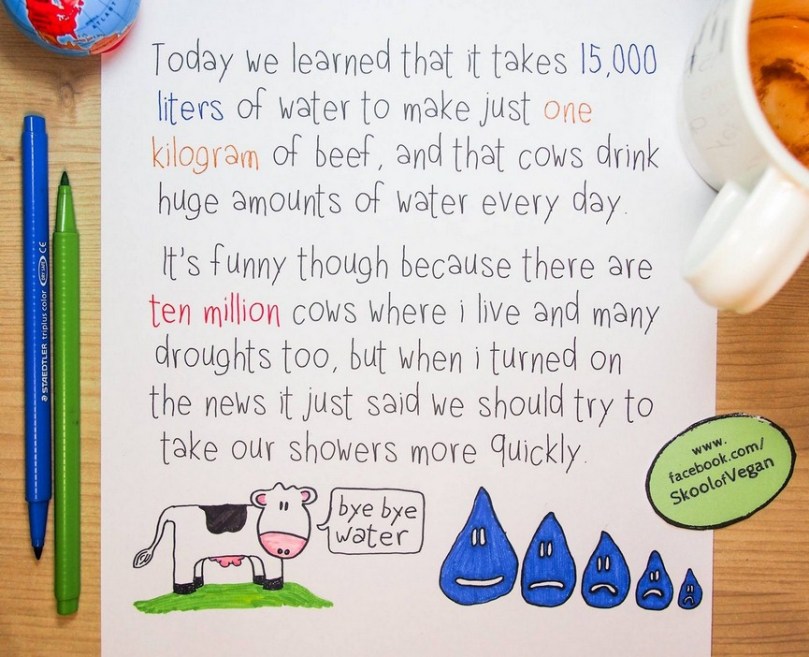 Today we learned that it takes 15,000
liters of water to make just one
kilogram of beef, and that cows drink
huge amounts of water every day.
It's funny though because there are
ten million cows where i live and many
droughts too, but when i turned on
the news it just said we should try to
take our showers more quickly.
bye bye
water
www.
facebook.com/
SkoolofVegan
STAEDTLER triplus color
CE